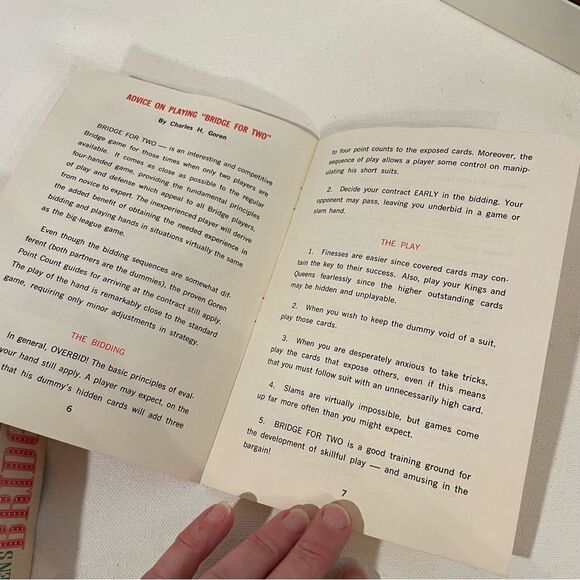 ADVICE ON PLAYING "BRIDGE FOR TWO"
By Charles H. Goren
BRIDGE FOR TWO — is an interesting and competitive
Bridge game for those times when only two players are
available. It comes as close as possible to the regular
four-handed game, providing the fundamental principles
of play and defense which appeal to all Bridge players,
from novice to expert. The inexperienced player will derive
the added benefit of obtaining the needed experience in
bidding and playing hands in situations virtually the same
as the big-league game.
Even though the bidding sequences are somewhat dif-
ferent (both partners are the dummies), the proven Goren
Point Count guides for arriving at the contract still apply.
The play of the hand is remarkably close to the standard
game, requiring only minor adjustments in strategy.
THE BIDDING
In general, OVERBID! The basic principles of eval-
your hand still apply. A player may expect, on the
that his dummy's hidden cards will add three
6
to four point counts to the exposed cards. Moreover, the
sequence of play allows a player some control on manip-
ulating his short suits.
2. Decide your contract EARLY in the bidding. Your
opponent may pass, leaving you underbid in a game or
slam hand.
THE PLAY
1. Finesses are easier since covered cards may con-
tain the key to their success. Also, play your Kings and
Queens fearlessly since the higher outstanding cards
may be hidden and unplayable.
2. When you wish to keep the dummy void of a suit,
play those cards.
3. When you are desperately anxious to take tricks,
play the cards that expose others, even if this means
that you must follow suit with an unnecessarily high card.
4. Slams are virtually impossible, but games come
up far more often than you might expect.
5. BRIDGE FOR TWO is a good training ground for
the development of skillful play — and amusing in the
bargain!
7